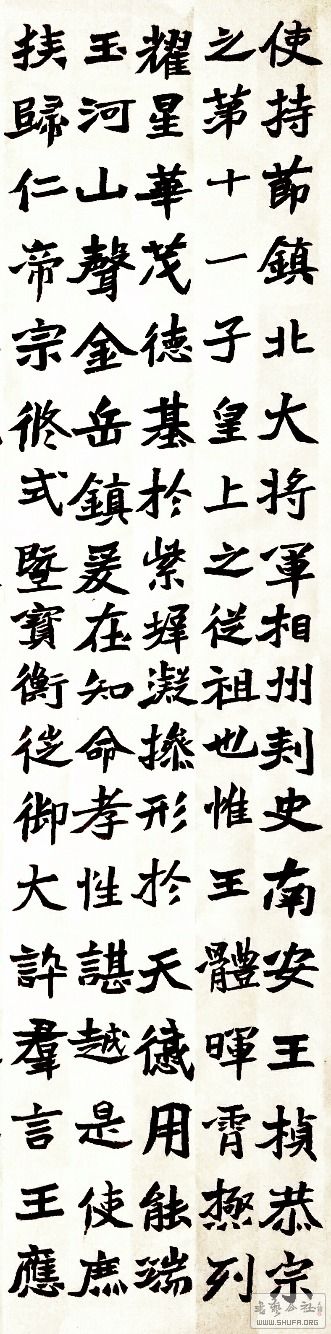 使持節鎮北大将軍相州刺史南安王楨恭宗
之第十一子皇上之從祖也惟王體暉霄極列
耀星華茂德基於紫墀凝操形於天儀用能端
玉河山聲金岳鎮爰在知命孝性諶越是使庶
族歸仁帝宗攸式暨寶衡徙御大誶羣言王應
书艺公社
WWW.SHUFA.ORG